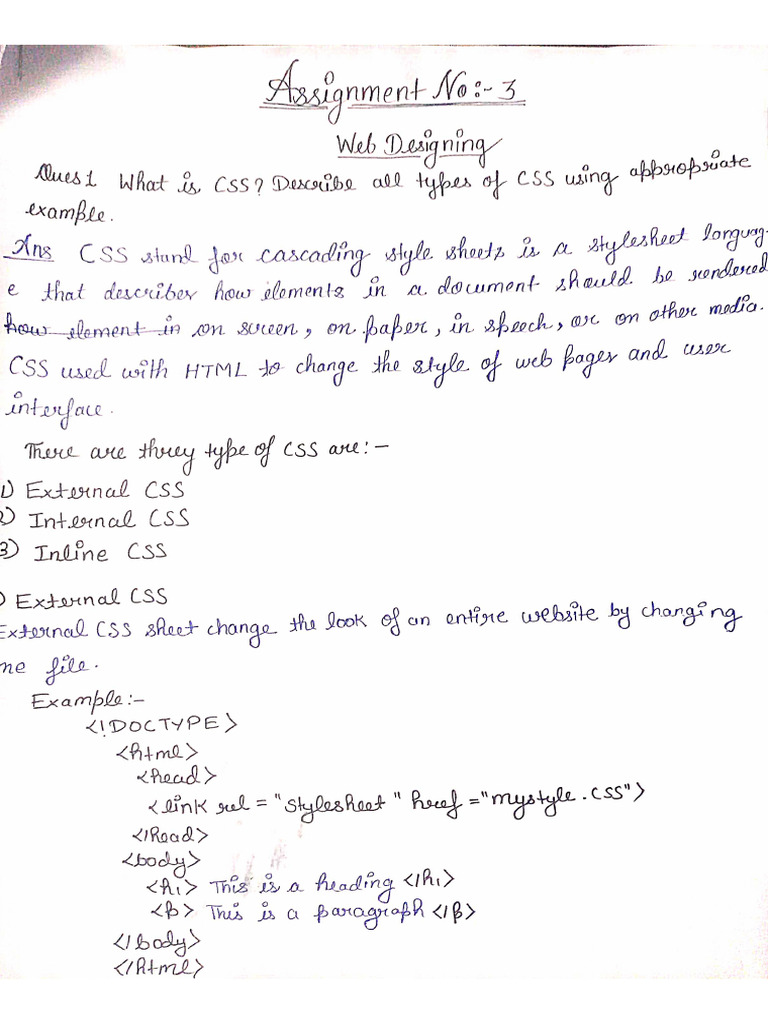 Assignment No:- 3
Web Designing
Ques1 What is CSS? Describe all types of CSS using appropriate
example.
Ans CSS stand for cascading style sheets is a stylesheet languag-
e that describes how elements in a document should be rendered
how element in on screen, on paper, in speech, or on other media.
CSS used with HTML to change the style of web pages and user
interface.
There are threy type of CSS are:-
1) External CSS
2) Internal CSS
3) Inline CSS
) External CSS
External CSS sheet change the look of an entire website by changing
ne file.
Example:-
<!DOCTYPE>
<html>
<head>
<link rel = "stylesheet" href ="mystyle.css">
</head>
<body>
<h1> This is a heading </h1>
<p> This is a paragraph </p>
</body>
</html>